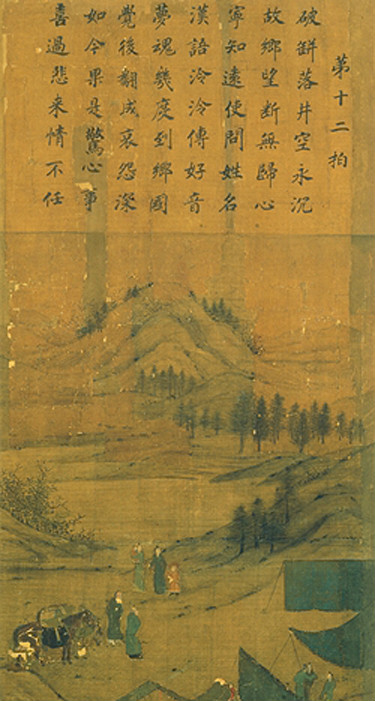 第十二拍
破缾落井空永沉
故鄉望斷無歸心
寧知遠使問姓名
漢語泠泠傳好音
夢魂幾度到鄉國
覺後翻成哀怨深
如今果是驚心事
喜過悲來情不任